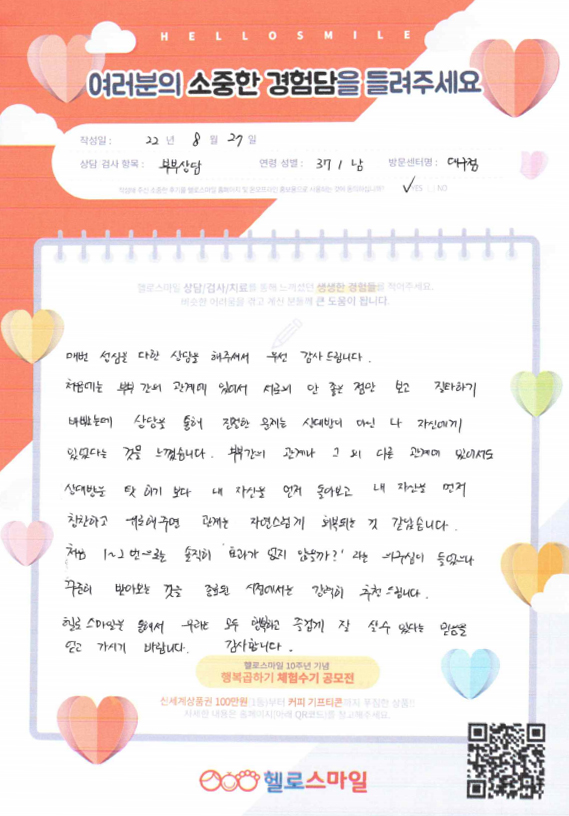 HELLOSMILE
여러분의 소중한 경험담을 들려주세요
작성일 : 22 년 8 월 29 일
상담 검사 항목 : 부부상담 연령 성별 : 37 / 남 방문센터명 : 대구점
작성해 주신 소중한 후기를 헬로스마일 홈페이지 및 온오프라인 홍보용으로 사용하는 것에 동의하십니까? ✓YES NO
헬로스마일 상담/검사/치료를 통해 느끼셨던 생생한 경험들을 적어주세요.
비슷한 어려움을 겪고 계신 분들께 큰 도움이 됩니다.
매번 성심을 다한 상담을 해주셔서 우선 감사드립니다.
처음에는 부부 간의 관계에 있어서 서로의 안 좋은 점만 보고 질타하기
바빴는데 상담을 통해 진정한 문제는 상대방이 아닌 나 자신에게
있었다는 것을 느꼈습니다. 부부간의 관계나 그 외 다른 관계에 있어서도
상대방을 탓 하기 보다 내 자신을 먼저 돌아보고 내 자신을 먼저
칭찬하고 위로해주면 관계는 자연스럽게 회복되는 것 같습니다.
처음 1~2번으로는 솔직히 '효과가 있지 않을까?' 라는 의구심이 들었으나
꾸준히 받아보는 것을 종료된 시점에서는 강력히 추천 드립니다.
헬로스마일을 통해서 우리는 모두 행복하고 즐겁게 잘 살 수 있다는 믿음을
얻고 가시기 바랍니다. 감사합니다.
헬로스마일 10주년 기념
행복곱하기 체험수기 공모전
신세계상품권 100만원(1등)부터 커피 기프티콘까지 푸짐한 상품!!
자세한 내용은 홈페이지(아래 QR코드)를 참고해주세요.
헬로스마일